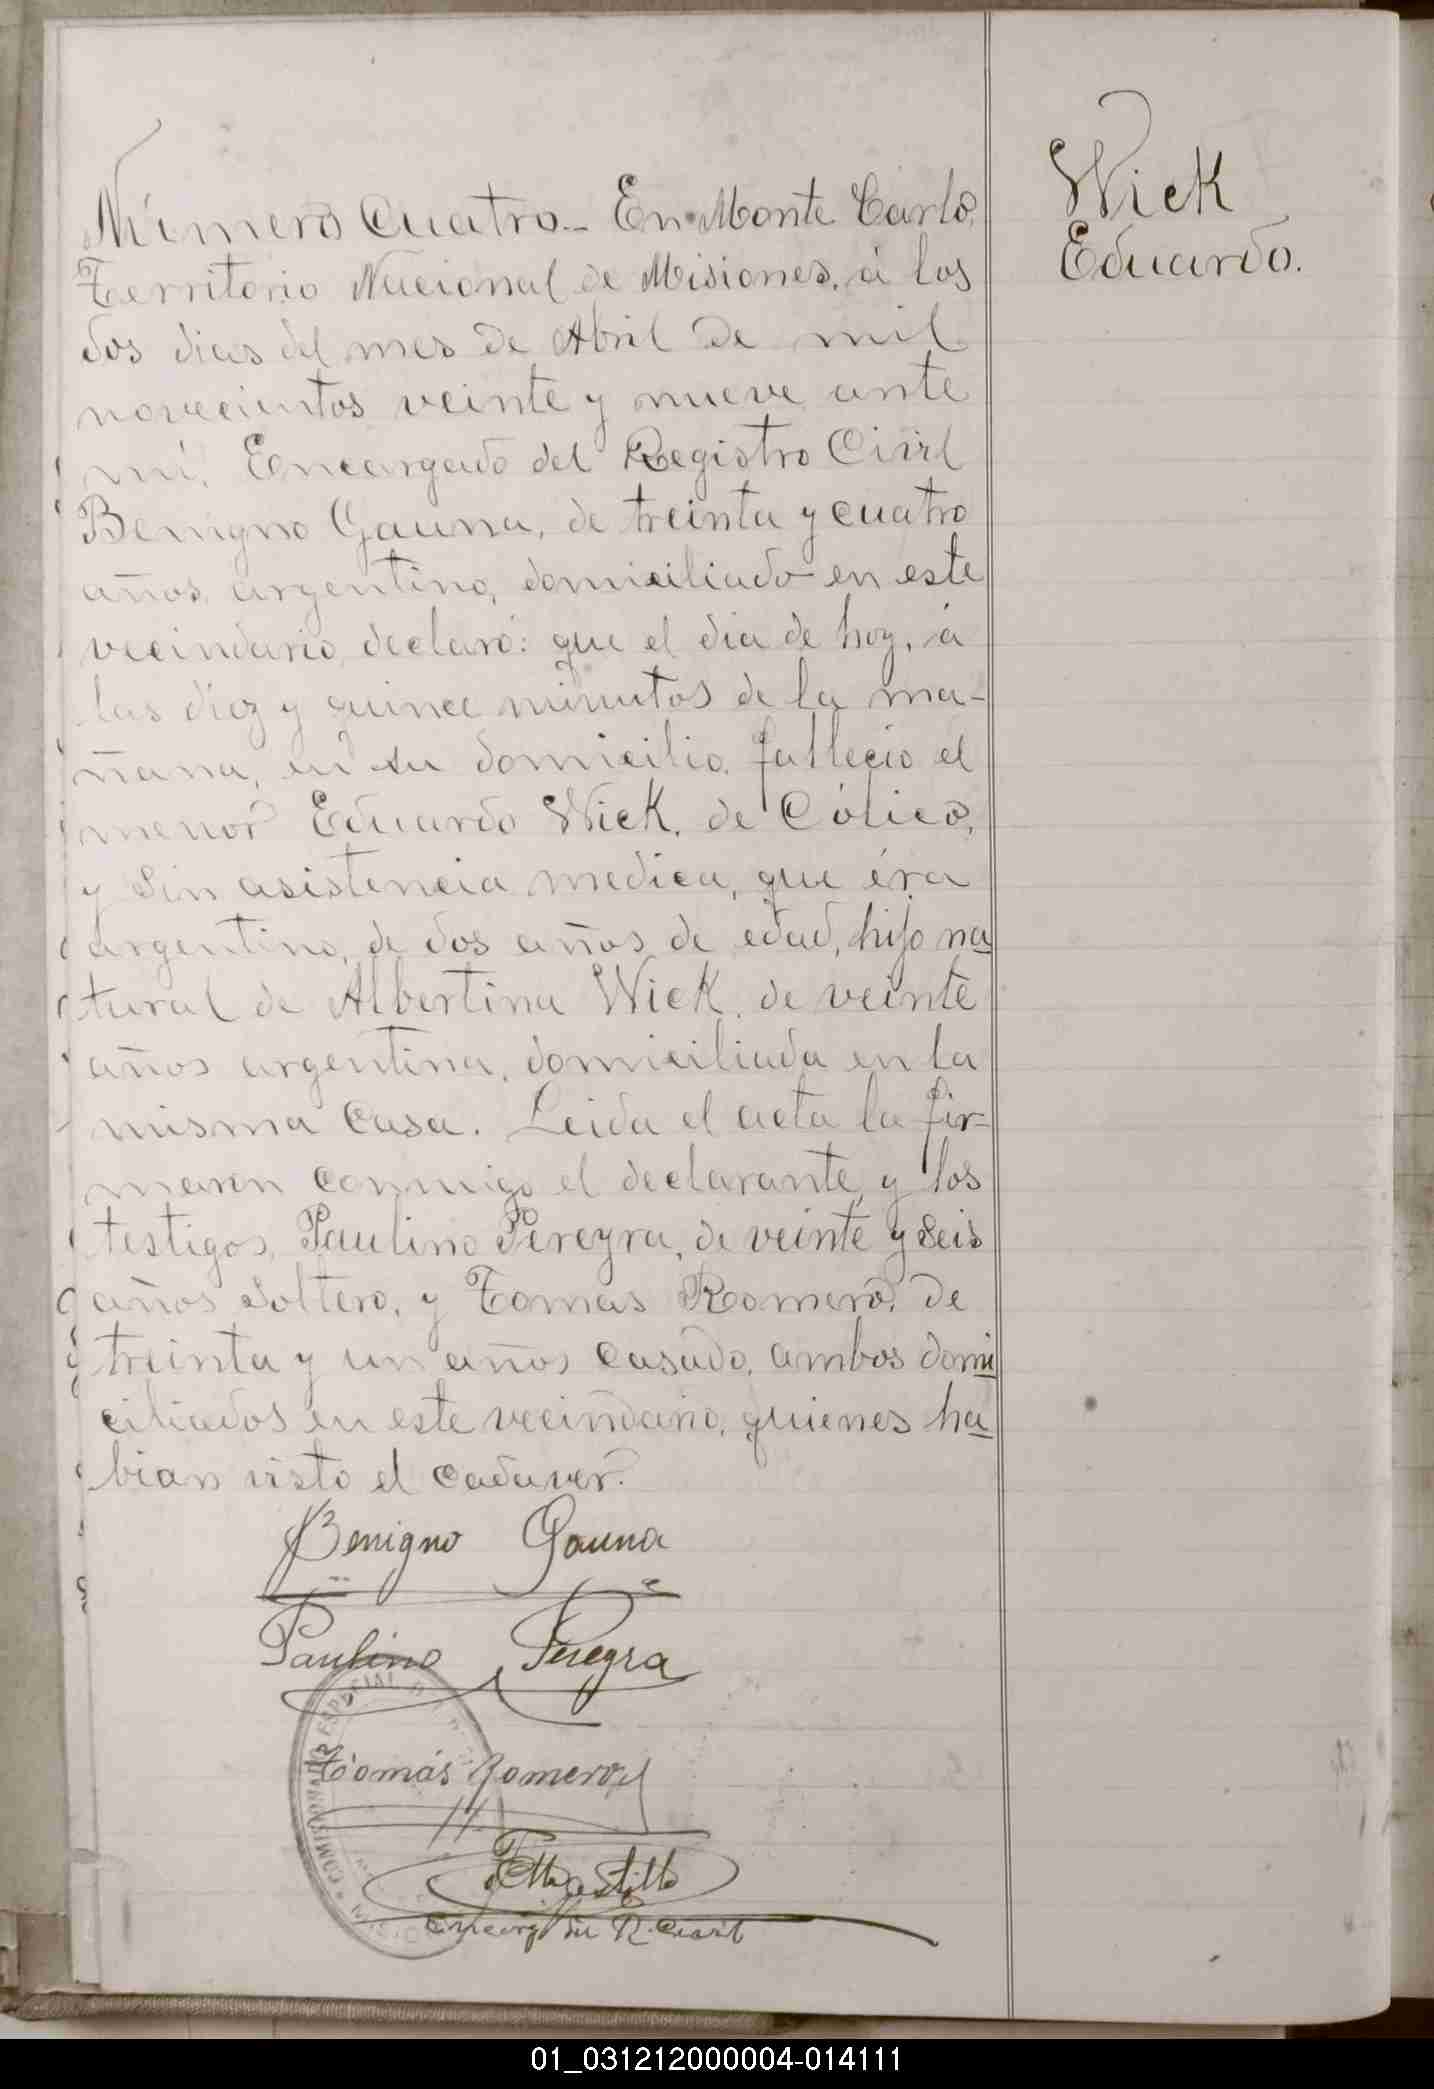 Número Cuatro.- En Monte Carlo,
Territorio Nacional de Misiones, á los
dos dias del mes de Abril de mil
novecientos veinte y nueve ante
mi, Encargado del Registro Civil
Benigno Gauna, de treinta y cuatro
años, argentino, domiciliado en este
vecindario, declaró: que el dia de hoy, á
las diez y quince minutos de la ma-
ñana, en su domicilio, fallecio el
menor Eduardo Wick, de Cólico,
y sin asistencia medica, que éra
argentino, de dos años de edad, hijo na
tural de Albertina Wick, de veinte
años argentina, domiciliada en la
misma casa. Leida el acta la fir-
maron conmigo el declarante, y los
testigos, Paulino Pereyra, de veinte y seis
años soltero, y Tomas Romero, de
treinta y un años casado, ambos domi
ciliados en este vecindario, quienes ha
bian visto el cadaver.
Benigno Gauna
Paulino Pereyra
Tomás Romero
Encarg del R. Civil
COMISARIO ESPECIAL
Wick
Eduardo.
01_031212000004-014111